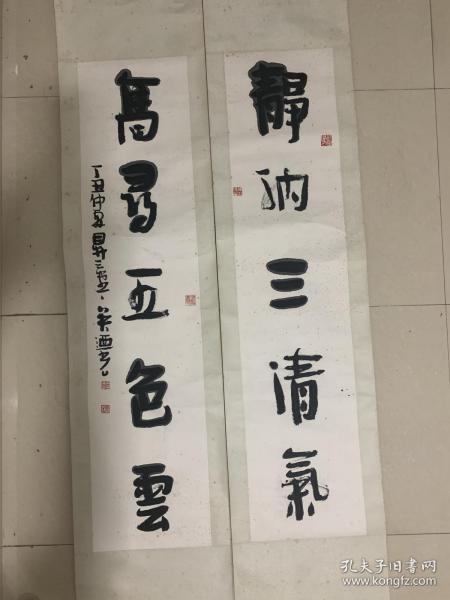 静納三清氣
高尋五色雲
丁丑仲夏
孔夫子旧书网
www.kongfz.com